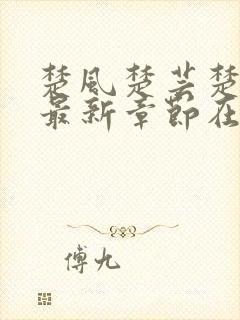 楚风楚芸楚
最新章节在
傅九